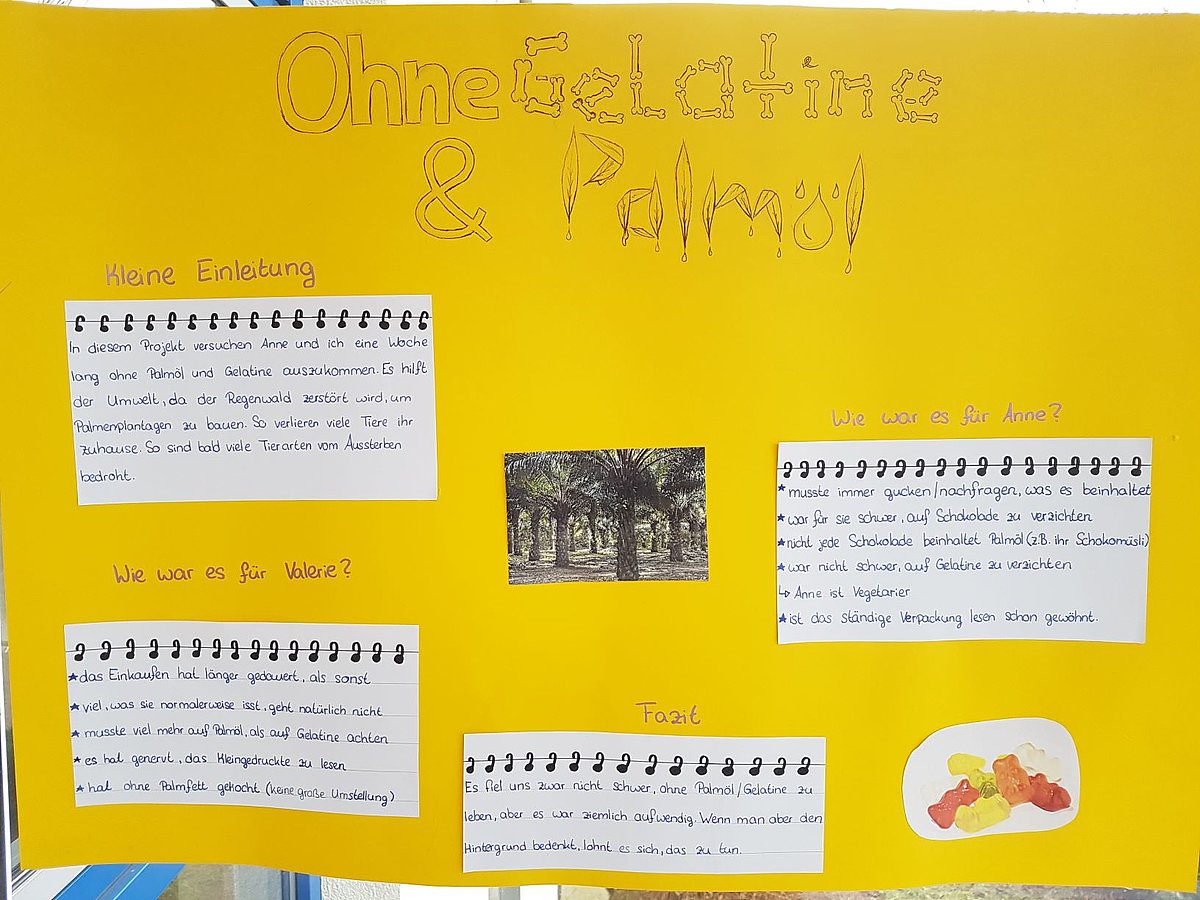 Ohne Gelatine
& Palmöl
Kleine Einleitung
In diesem Projekt versuchen Anne und ich eine Woche
lang ohne Palmöl und Gelatine auszukommen. Es hilft
der Umwelt, da der Regenwald zerstört wird, um
Palmenplantagen zu bauen. So verlieren viele Tiere ihr
zuhause. So sind bald viele Tierarten vom Aussterben
bedroht.
Wie war es für Valerie?
★ das Einkaufen hat länger gedauert, als sonst
★ viel, was sie normalerweise isst, geht natürlich nicht
★ musste viel mehr auf Palmöl, als auf Gelatine achten
★ es hat genervt, das Kleingedruckte zu lesen
★ hat ohne Palmfett gekocht (keine große Umstellung)
Wie war es für Anne?
★ musste immer gucken/nachfragen, was es beinhaltet
★ war für sie schwer, auf Schokolade zu verzichten
★ nicht jede Schokolade beinhaltet Palmöl (z.B. ihr Schokomüsli)
★ war nicht schwer, auf Gelatine zu verzichten
↳ Anne ist Vegetarier
★ ist das ständige Verpackung lesen schon gewöhnt.
Fazit
Es fiel uns zwar nicht schwer, ohne Palmöl/Gelatine zu
leben, aber es war ziemlich aufwendig. Wenn man aber den
Hintergrund bedenkt, lohnt es sich, das zu tun.